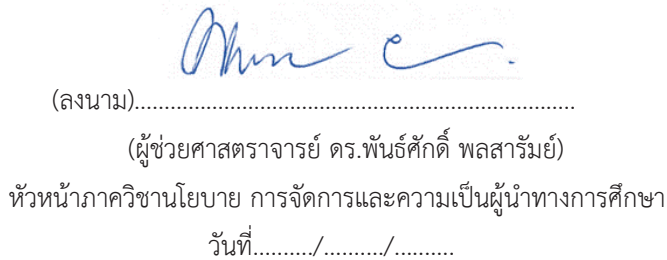 (ลงนาม)..........................................................................
(ผู้ช่วยศาสตราจารย์ ดร.พันธ์ศักดิ์ พลสารัมย์)
หัวหน้าภาควิชานโยบาย การจัดการและความเป็นผู้นำทางการศึกษา
วันที่........../........../..........